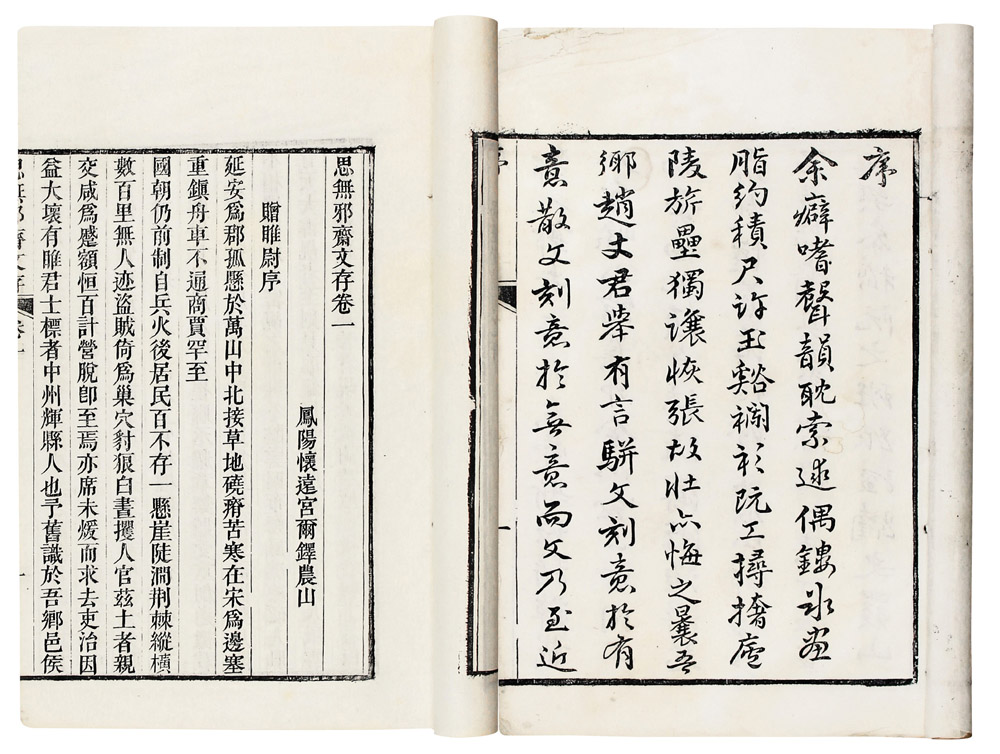 序
余癖嗜聲韻耽索逑偶鏤冰畫
脂約積尺許玉谿襴衫阮工撏撦庾
陵旂壘獨讓恢張故壯亦悔之曩吾
鄉趙丈君舉有言駢文刻意於有
意散文刻意於無意而文乃至近
思無邪齋文存卷一
鳳陽懷遠宮爾鐸農山
贈睢尉序
延安爲郡孤懸於萬山中北接草地磽瘠苦寒在宋爲邊塞
重鎭舟車不通商賈罕至
國朝仍前制自兵火後居民百不存一懸崖陡澗荆棘縱橫
數百里無人迹盜賊倚爲巢穴豺狼白晝攫人官茲土者親
交咸爲蹙額恒百計營脫卽至焉亦席未煖而求去吏治因
益大壞有睢君士標者中州輝縣人也予舊識於吾鄉邑侯
思無邪齋文存 卷一 一